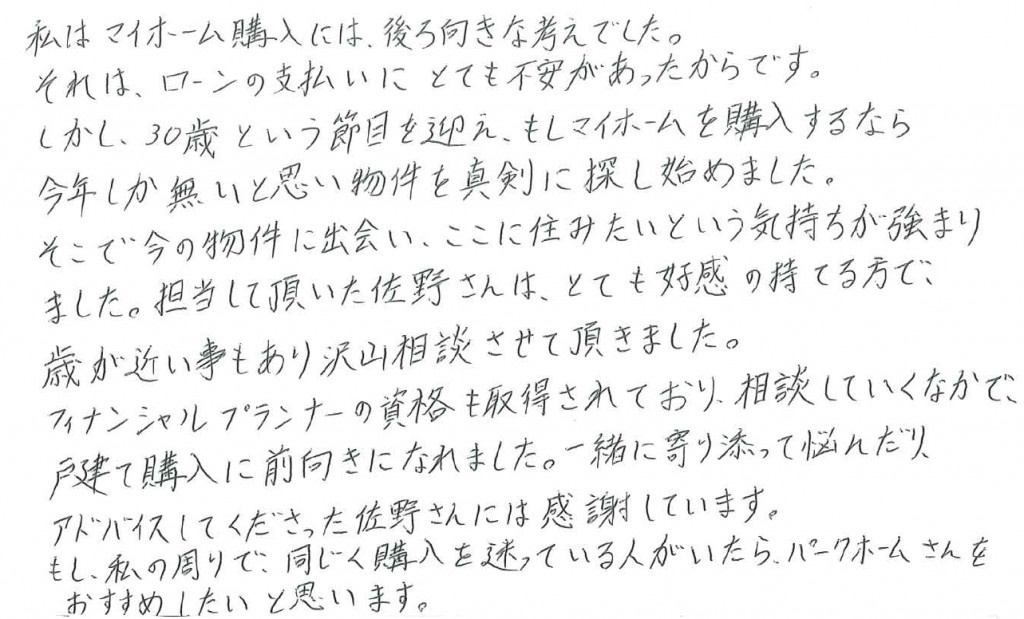 私はマイホーム購入には、後ろ向きな考えでした。
それは、ローンの支払いにとても不安があったからです。
しかし、30歳という節目を迎え、もしマイホームを購入するなら
今年しか無いと思い物件を真剣に探し始めました。
そこで今の物件に出会い、ここに住みたいという気持ちが強まり
ました。担当して頂いた佐野さんは、とても好感の持てる方で、
歳が近い事もあり沢山相談させて頂きました。
フィナンシャルプランナーの資格も取得されており、相談していくなかで、
戸建て購入に前向きになれました。一緒に寄り添って悩んだり、
アドバイスしてくださった佐野さんには感謝しています。
もし、私の周りで、同じく購入を迷っている人がいたら、パークホームさんを
おすすめしたいと思います。